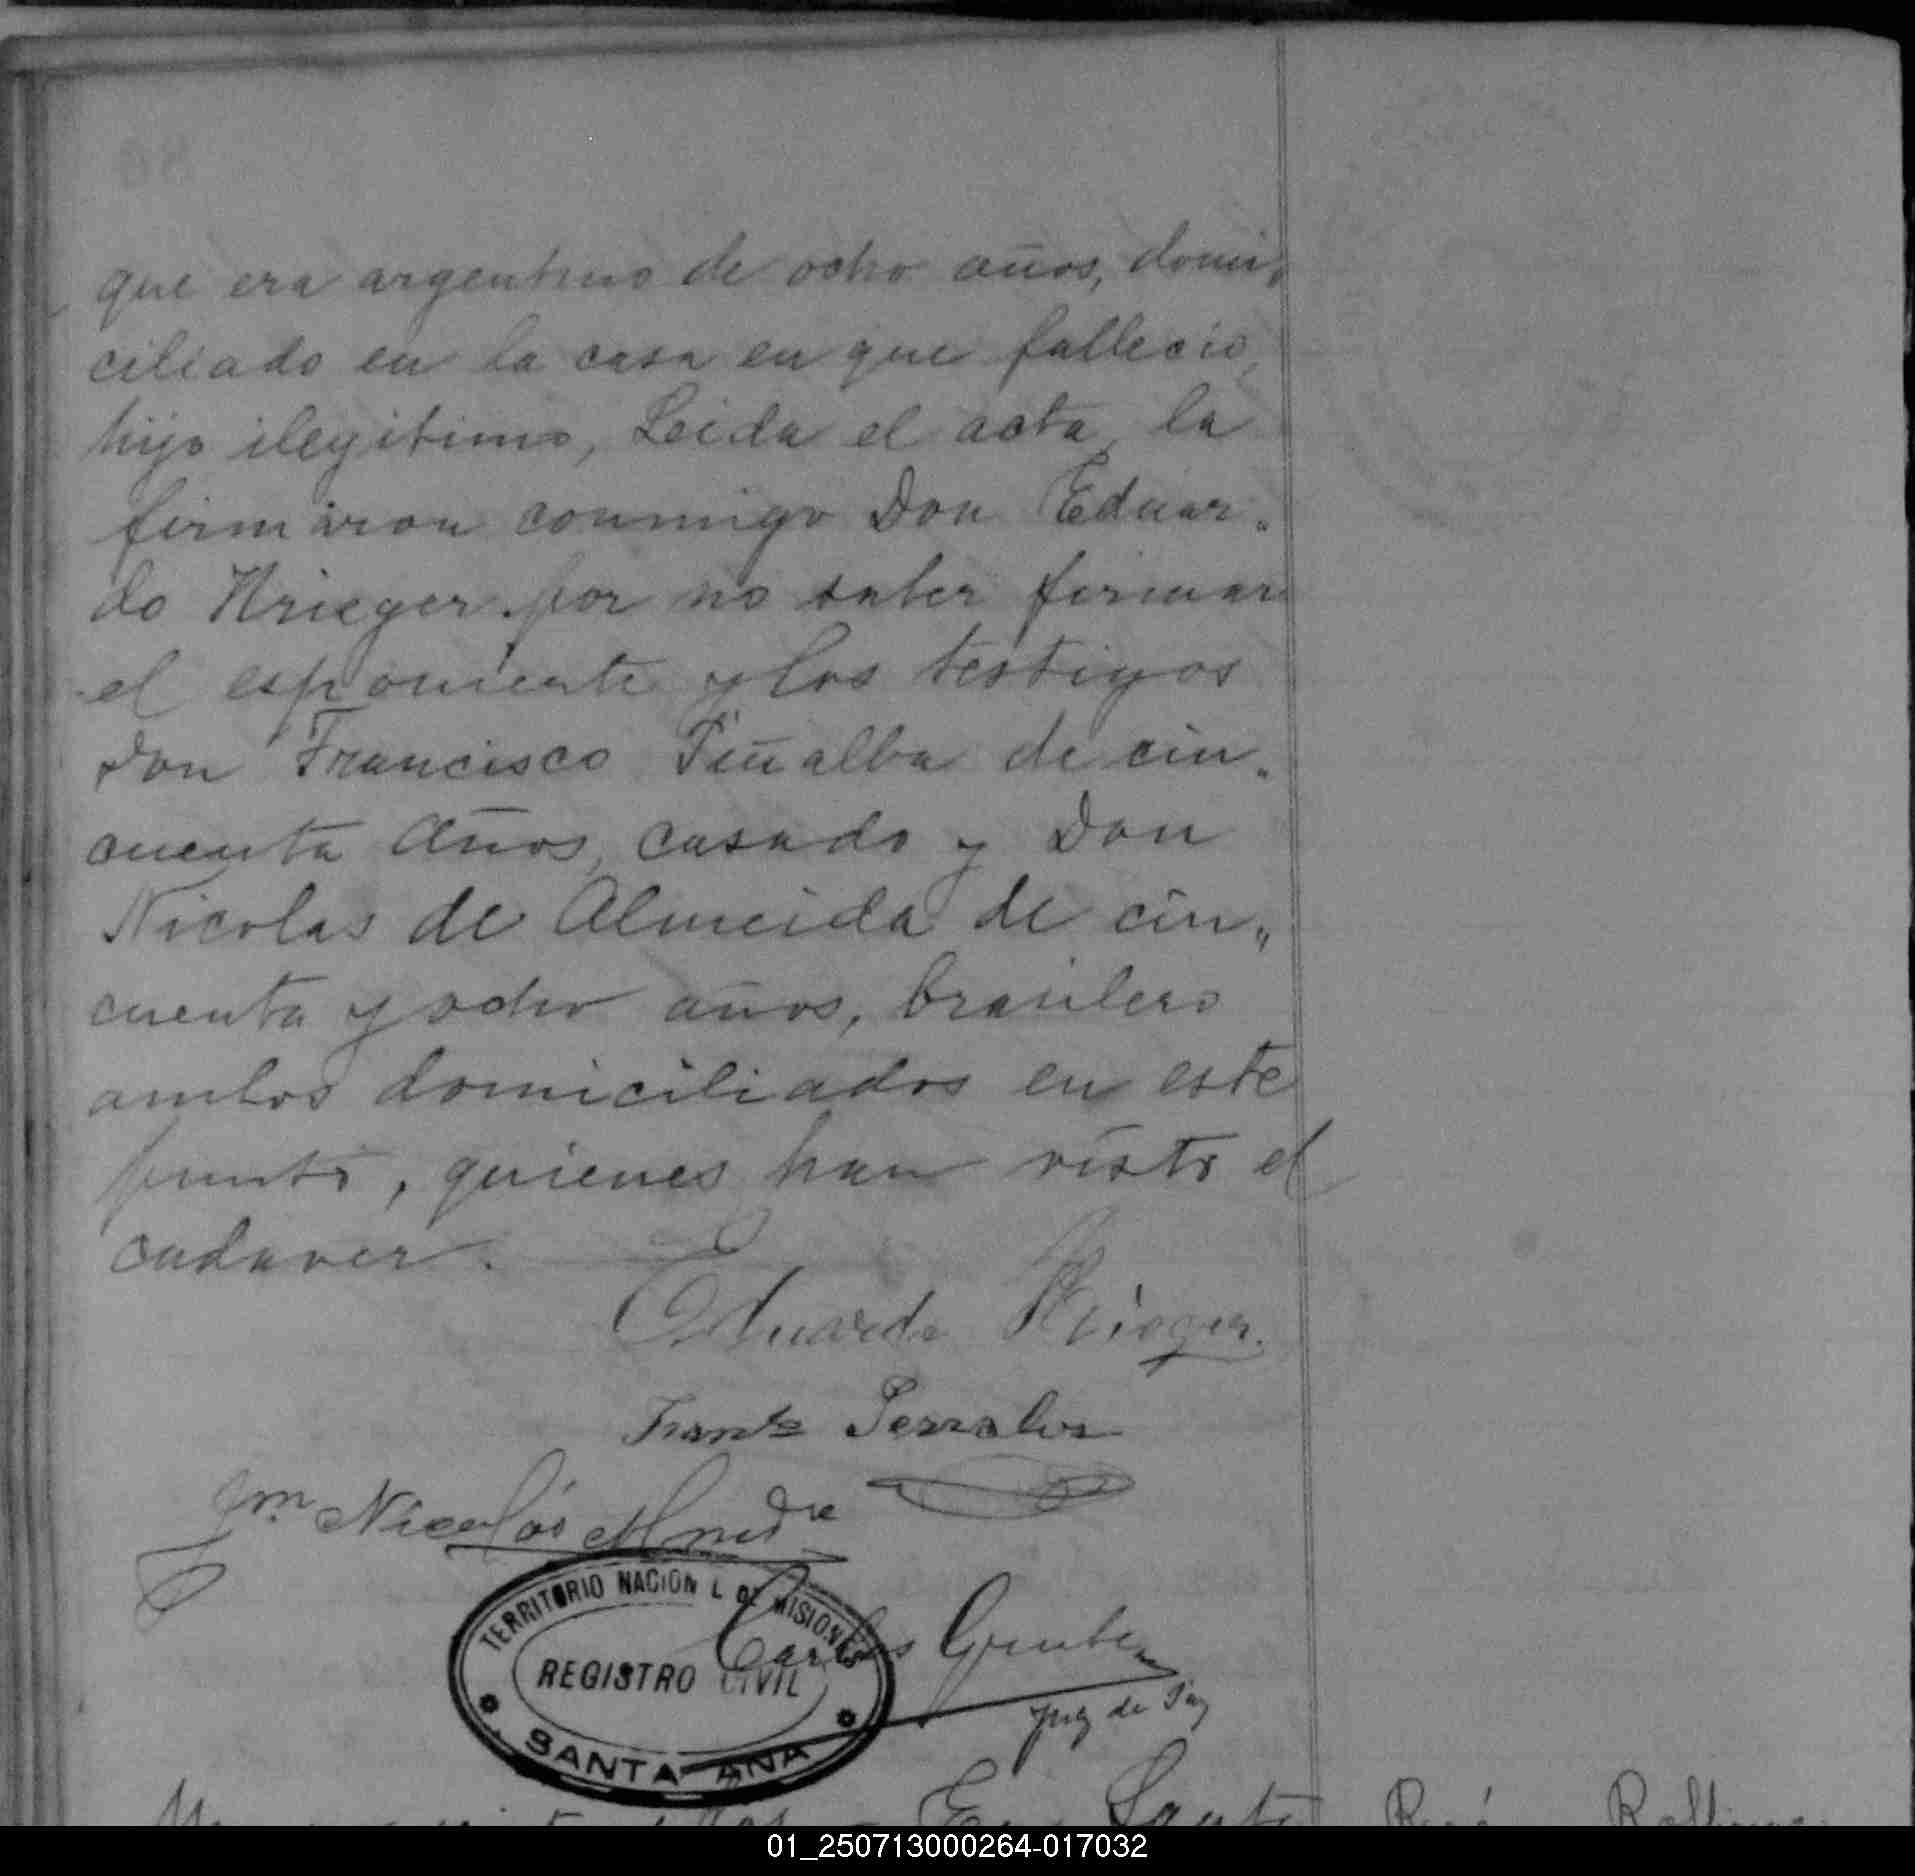 que era argentino de ocho años, domi„
ciliado en la casa en que fallecio,
hijo ilegitimo, Leida el acta, la
firmaron conmigo Don Eduar„
do Krieger por no saber firmar
el esponiente y los testigos
Don Francisco Piñalba de cin„
cuenta años, casado y Don
Nicolas de Almeida de cin„
cuenta y ocho años, brasilero
ambos domiciliados en este
punto, quienes han visto el
cadaver.
Eduardo Krieger.
Nicolás
Carlos
Juez de Paz
TERRITORIO NACION L DE MISIONES
REGISTRO CIVIL
SANTA ANA
En Santa